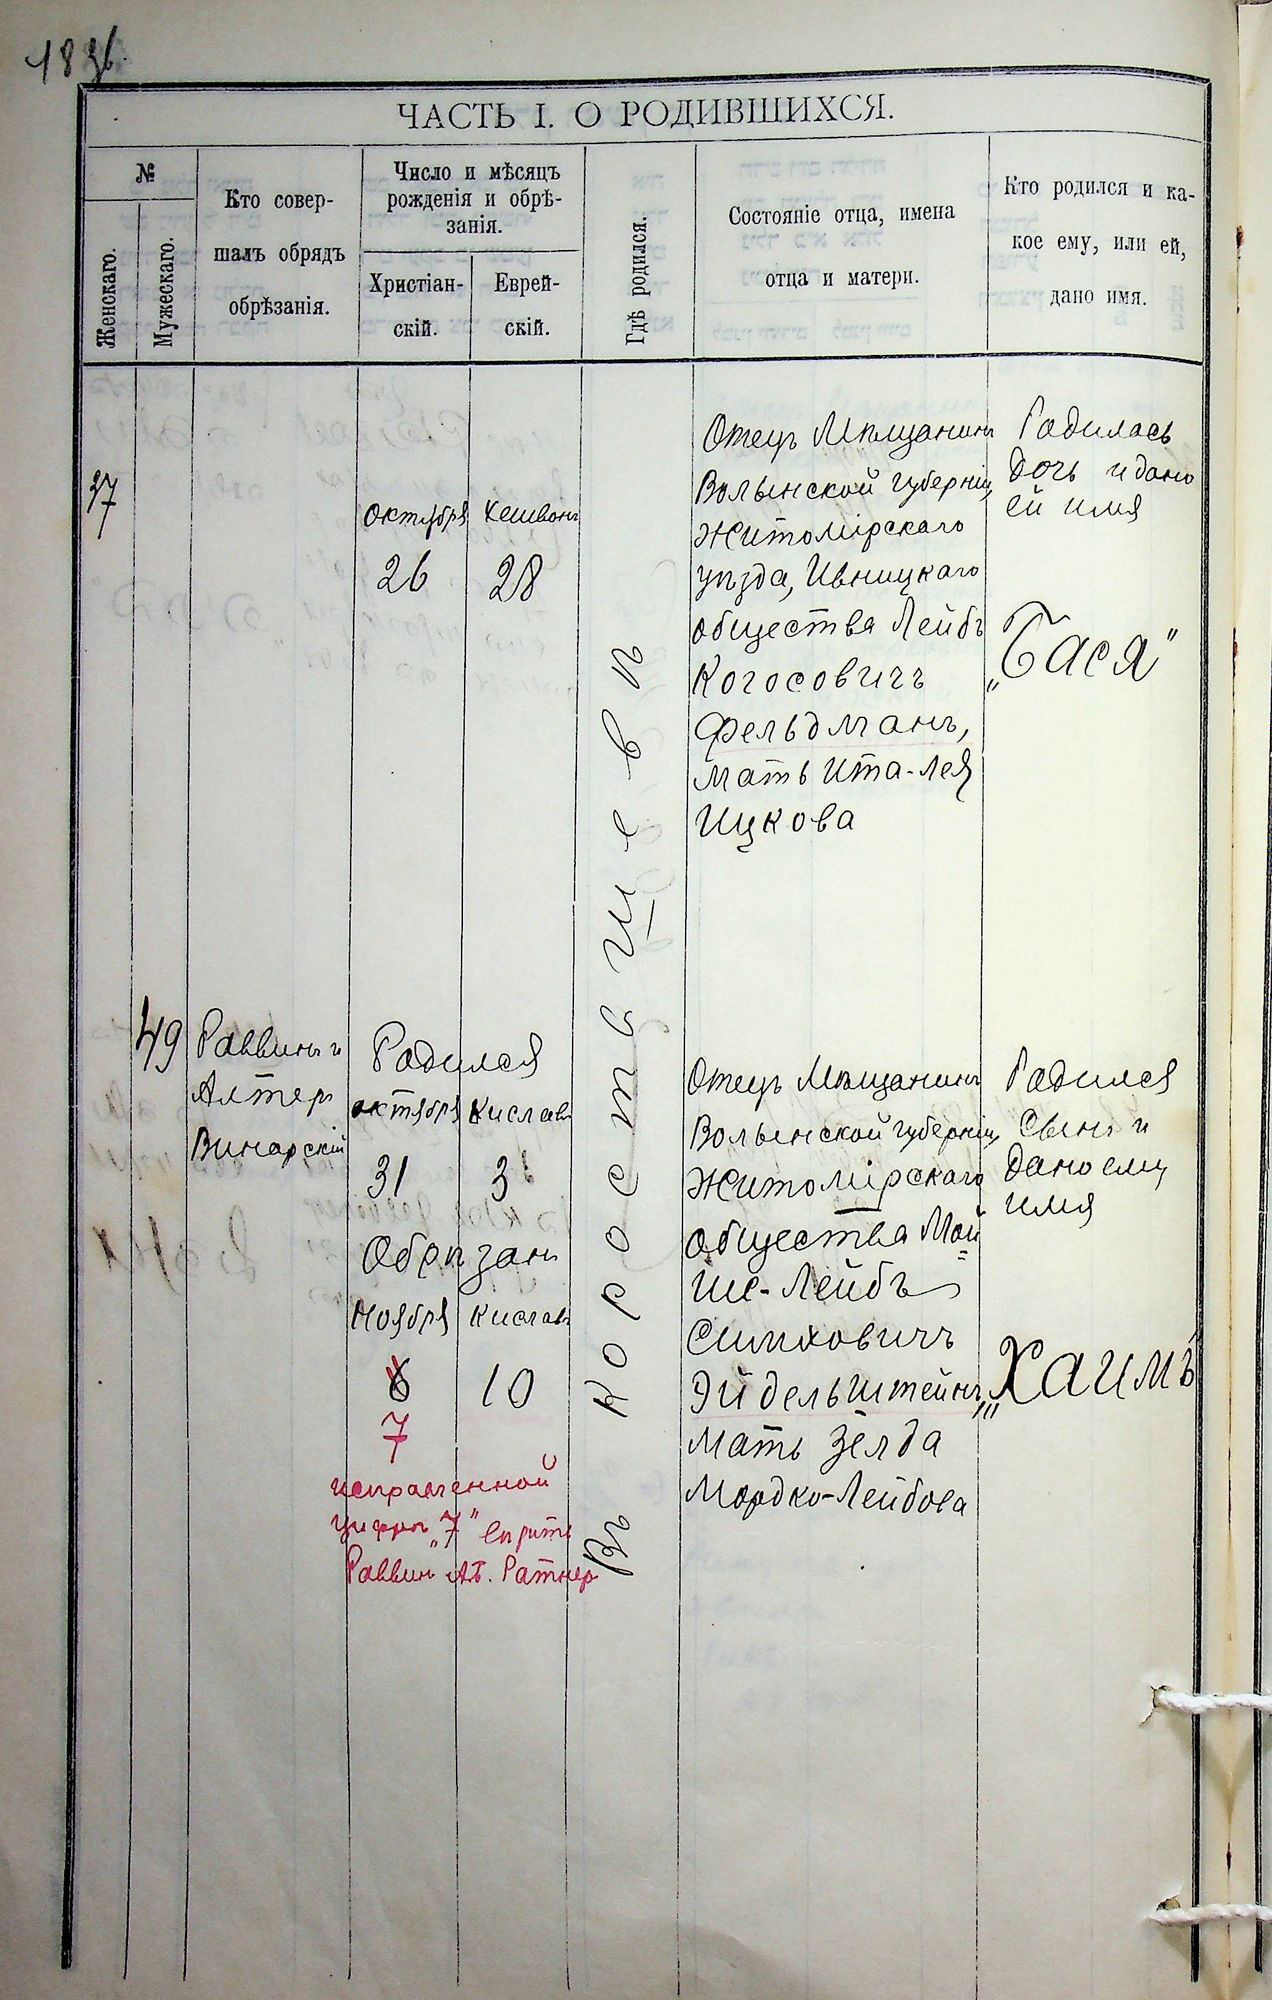 ЧАСТЬ I. О РОДИВШИХСЯ.
№
Женскаго.
Мужескаго.
Кто совер-
шалъ обрядъ
обрѣзанія.
Число и мѣсяцъ
рожденія и обрѣ-
занія.
Христіан-
скій.
Еврей-
скій.
Гдѣ родился.
Состояніе отца, имена
отца и матери.
Кто родился и ка-
кое ему, или ей,
дано имя.
37
Октября
26
Хешвонъ
28
Въ Коростишевѣ
Отецъ Мѣщанинъ
Волынской губерніи,
Житомірскаго
уѣзда, Ивницкаго
общества Лейбъ
Когосовичъ
Фельдманъ,
мать Ита-Лея
Ицкова
Родилась
дочь и дано
ей имя
„Бася"
49
Раввинъ и
Алтеръ
Винарскій
Родился
октября
31
Киславъ
3
Обрѣзанъ
Ноября
6
7
Киславъ
10
исправленной
цифрѣ „7" вѣрить
Раввинъ Аб. Ратнеръ
Отецъ Мѣщанинъ
Волынской губерніи,
Житомірскаго
общества Мой
ше-Лейбъ
Симховичъ
Эйдельштейнъ,
мать Зелда
Мордко-Лейбова
Родился
Сынъ и
дано ему
имя
„Хаимъ"